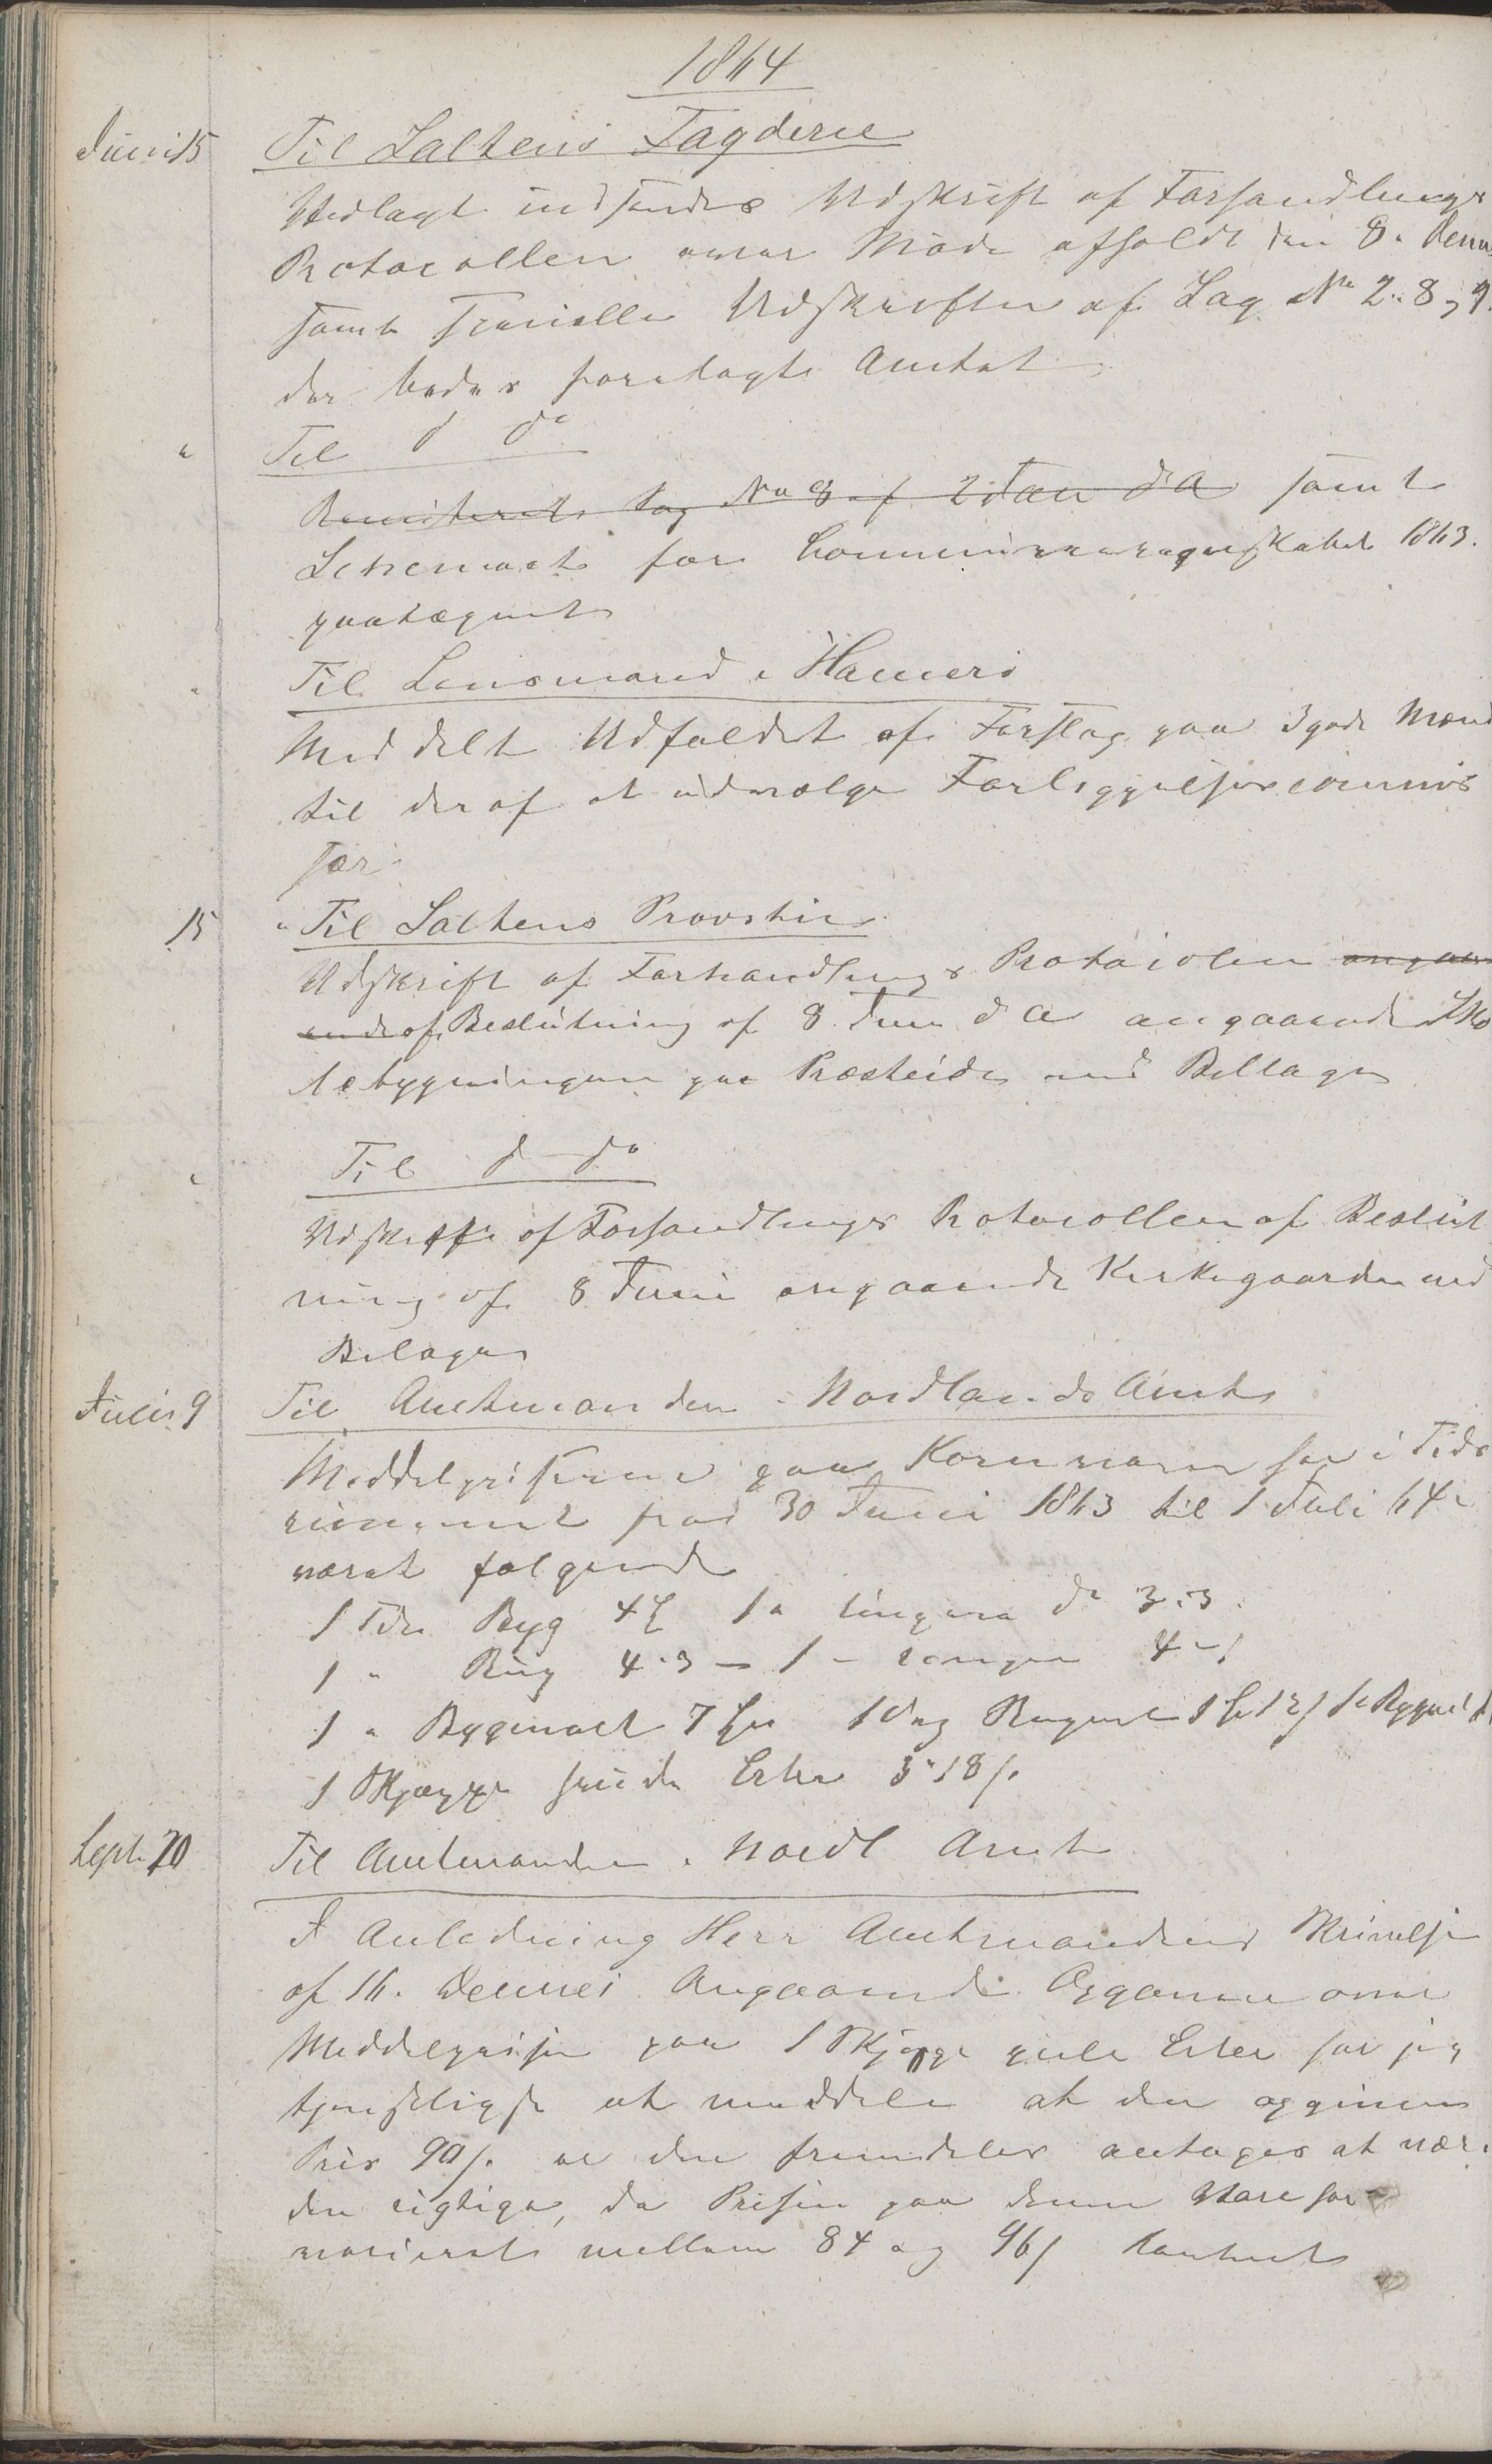 1864
Juni 15 Til Saltens Fogderie
Vedlagt indsendes Udskrift af Forhandlings
Protocollen over Møde afholdt den 8. dennes
samt specielle Udskrifter af Sag No 2. 8, 9.
der bedes forelagte Amtet
" Til d do
Remitteret Sag No 8 af 2 Jan d A samt
Schemaet for Communeregnskabet 1863.
paategnet
" Til Lensmand i Hamerø
Meddelt Udfaldet af Forslag paa 3 gode Mænd
til deraf at udvælge Forligelsescommis
sær
15 " Til Saltens Provstie
Udskrift af Forhandlings Protocolen angaa
ende af Beslutning af 8 Juni d A angaaende Sko
lebygningen paa Presteide med Bellage
" Til d do
Udskrift af Forhandlings Protocollen af Beslut
ning af 8 Juni angaaende Kirkegaarden med
Bilage
Juli 9 Til Amtmanden i Nordlands Amt
Middelpriserne paa Kornvarer har i Tids
rummet fra 30 Juni 1863 til 1 Juli 64
været følgende
1 Tde Byg 4 1 do 3.3.
1 " Rug 4.3 — 1 — 4 - 1
1 " Bygmel 7 1 Vog Rugmel
1 Skjæppe Erter 3 " 18 /.
Sept. 20 Til Amtmanden i Nordl Amt
I Anledning Herr Amtmandens Skrivelse
af 16. dennes Angaaende Opgaven over
Middelprisen paa 1 Skjeppe gule Erter har jeg
tjenstligst at meddele at den opgivne
Pris 90 /. er den fremdeles antages at være
den rigtige, da Prisen paa denne Vare har
varieret mellem 84 og 96 / contant